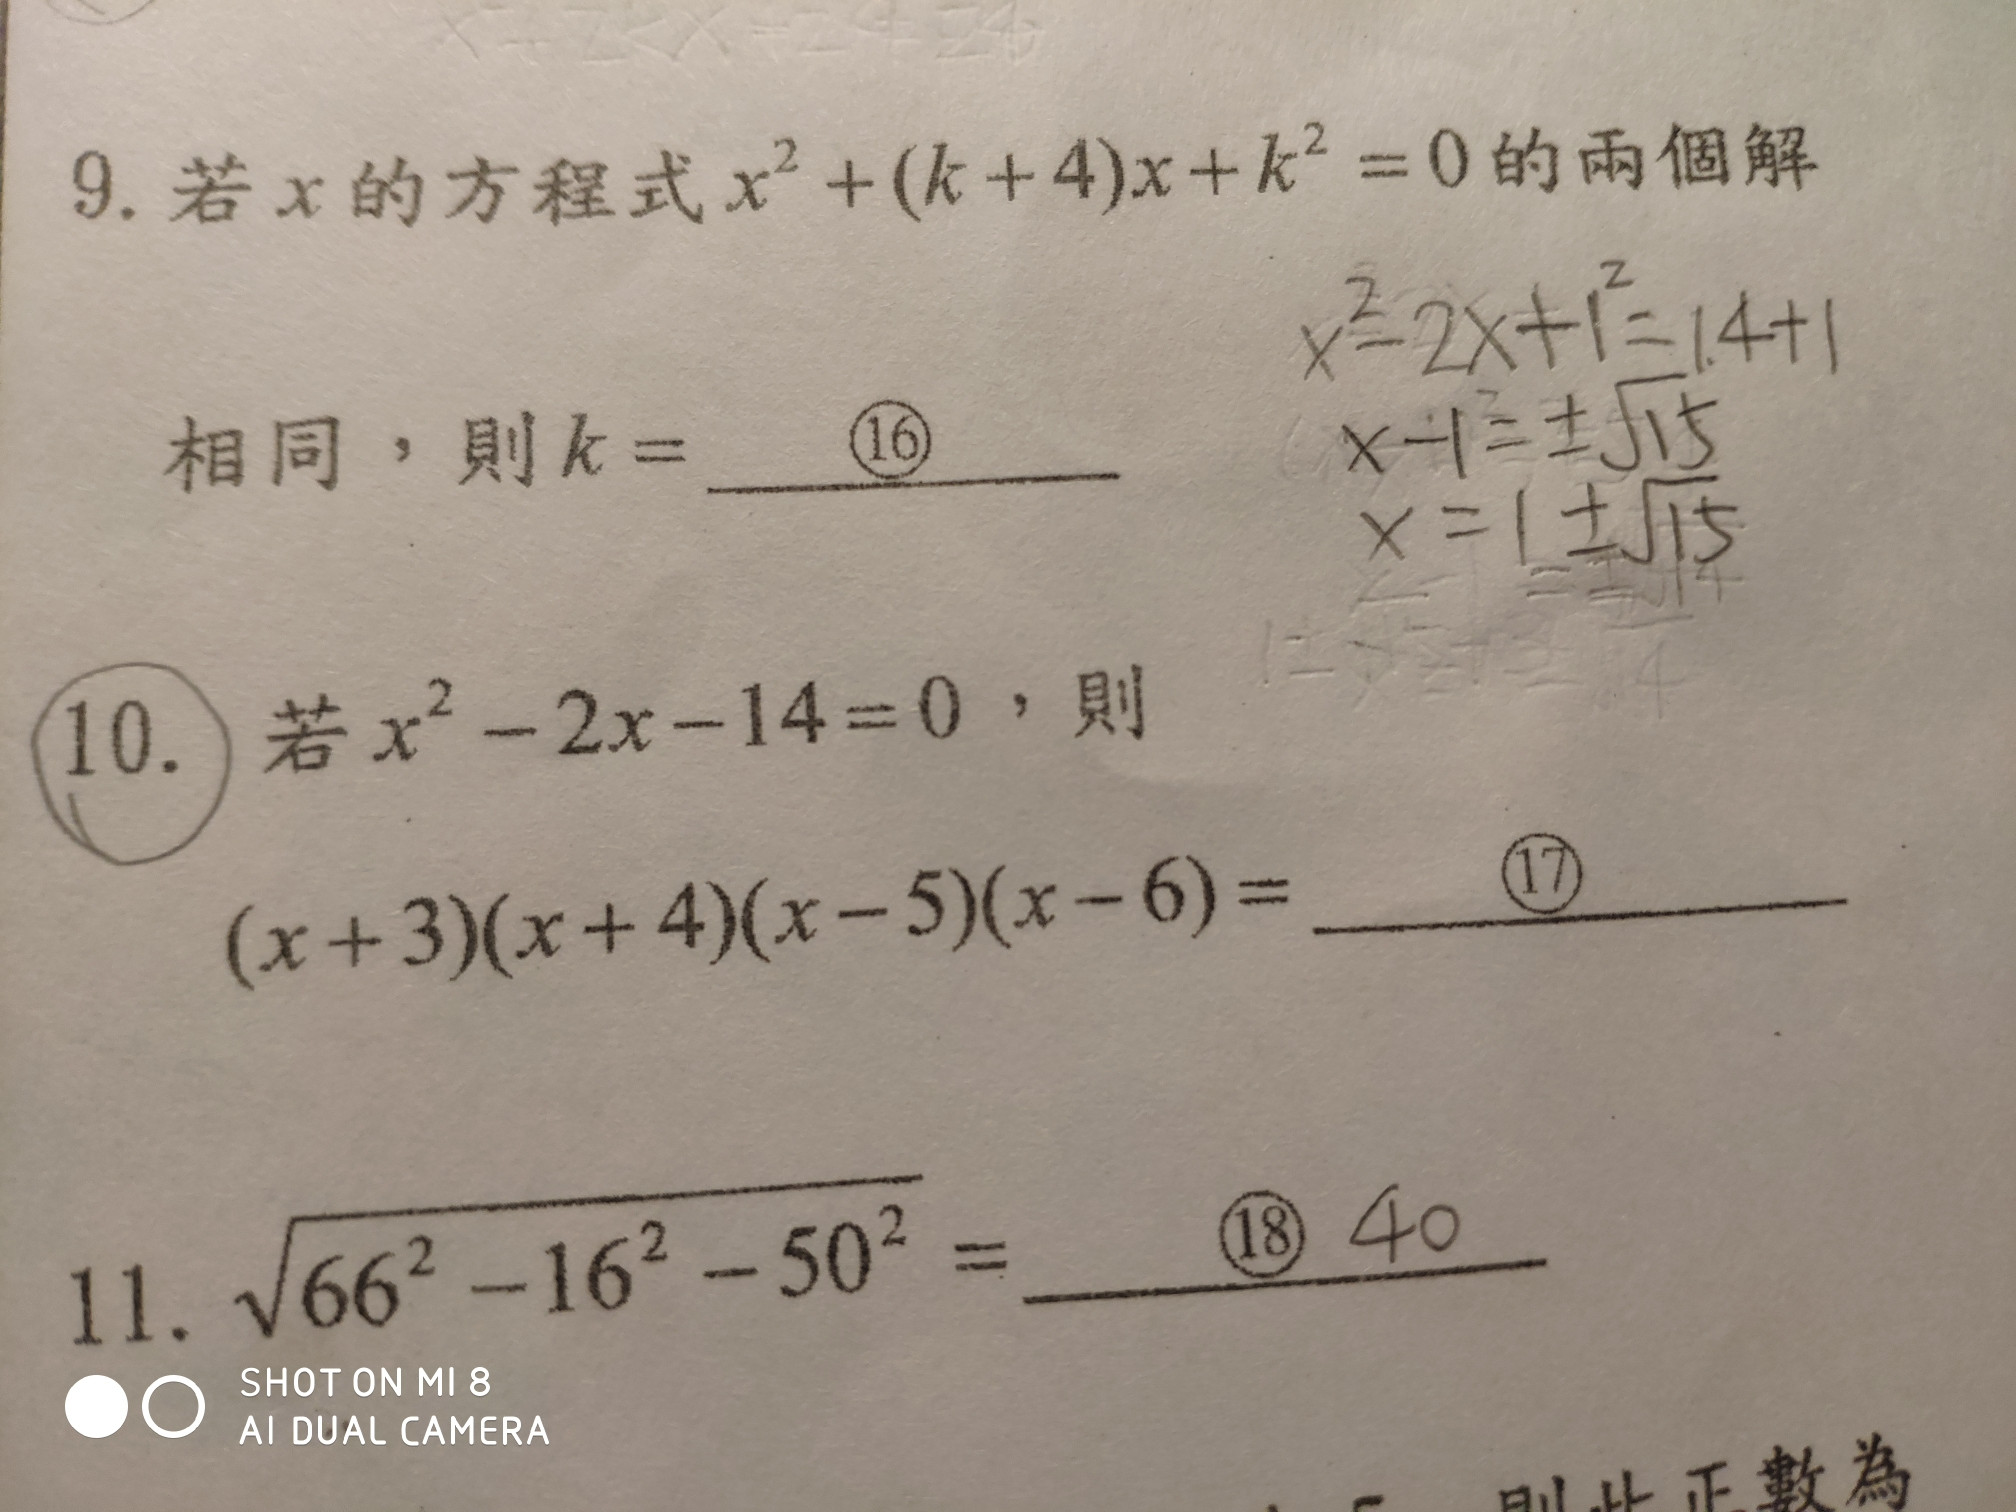 9. 若 x 的方程式 x² + (k + 4)x + k² = 0 的兩個解
x² - 2x + 1² = 14 + 1
相同，則 k = ⑯
x - 1 = ±√15
x = 1 ± √15
10. 若 x² − 2x − 14 = 0，則
(x + 3)(x + 4)(x − 5)(x − 6) = ⑰
11. √(66² − 16² − 50²) = ⑱ 40
SHOT ON MI 8
AI DUAL CAMERA
則此正數為